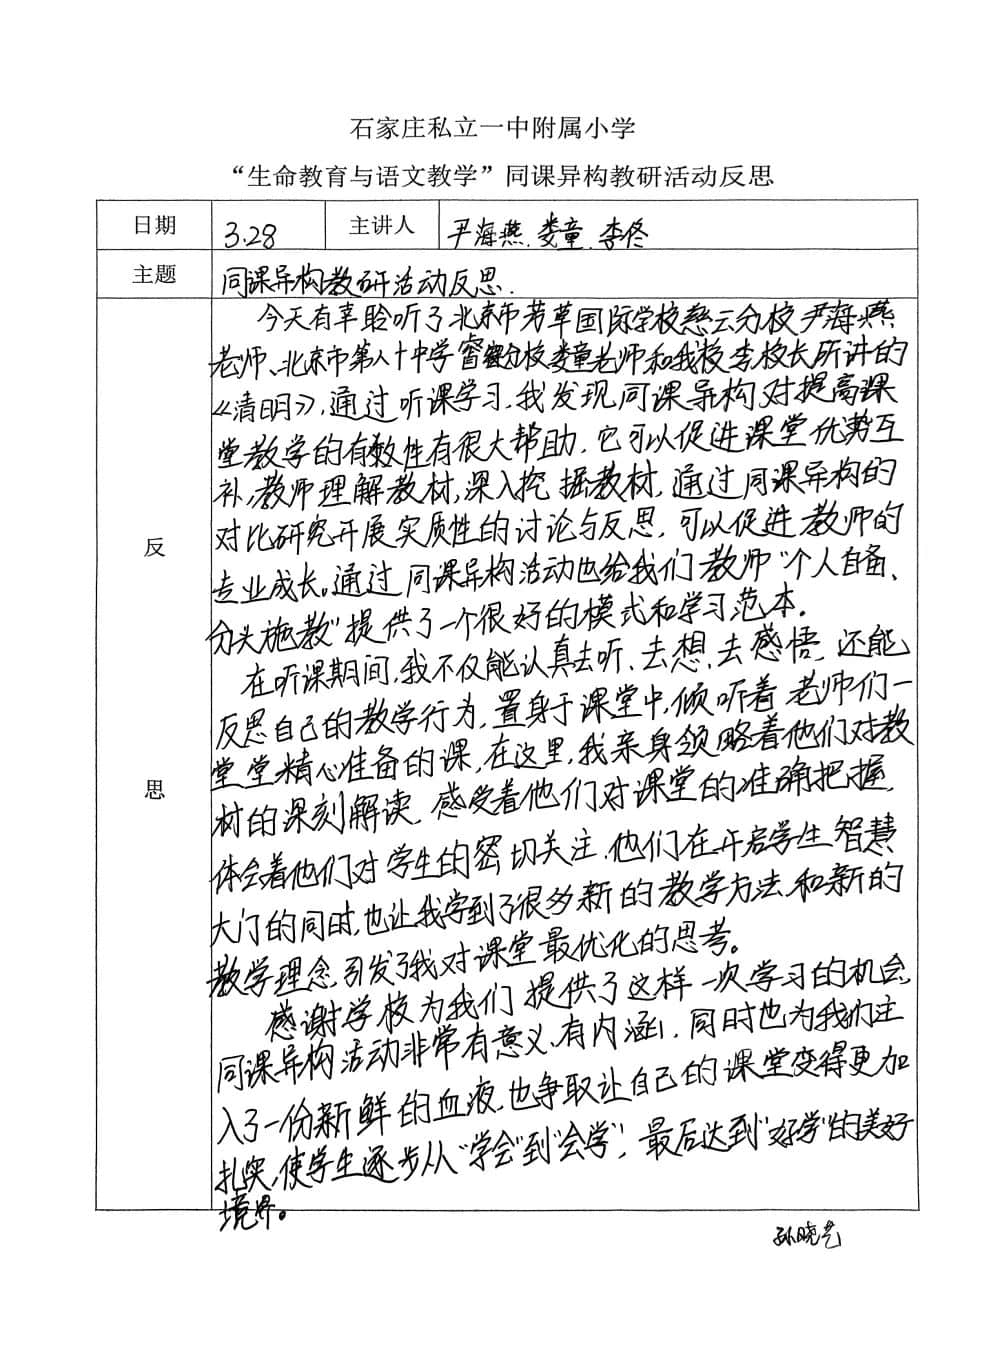 石家庄私立一中附属小学
“生命教育与语文教学”同课异构教研活动反思
日期 3.28 主讲人 尹海燕.娄童.李佟
主题 同课异构教研活动反思.
今天有幸聆听了北京市芳草国际学校慈云分校尹海燕
老师、北京市第八十中学睿德分校娄童老师和我校李校长所讲的
《清明》,通过听课学习,我发现同课异构对提高课
堂教学的有效性有很大帮助,它可以促进课堂优势互
补,教师理解教材,深入挖掘教材,通过同课异构的
对比研究开展实质性的讨论与反思,可以促进教师的
专业成长。通过同课异构活动也给我们教师“个人自备、
分头施教”提供了一个很好的模式和学习范本.
在听课期间,我不仅能认真去听、去想、去感悟,还能
反思自己的教学行为,置身于课堂中,倾听着老师们一
堂堂精心准备的课,在这里,我亲身领略着他们对教
材的深刻解读,感受着他们对课堂的准确把握,
体会着他们对学生的密切关注.他们在开启学生智慧
大门的同时,也让我学到了很多新的教学方法和新的
教学理念,引发了我对课堂最优化的思考。
感谢学校为我们提供了这样一次学习的机会,
同课异构活动非常有意义、有内涵,同时也为我们注
入了一份新鲜的血液,也争取让自己的课堂变得更加
扎实,使学生逐步从“学会”到“会学”,最后达到“好学”的美好
境界。
反
思
孙晓艺